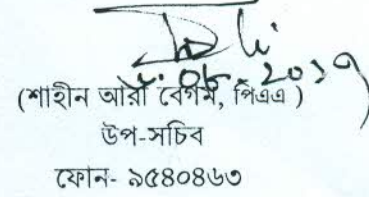 ২০১৭
(শাহীন আরা বেগম, পিএএ )
উপ-সচিব
ফোন- ৯৫৪০৪৬৩